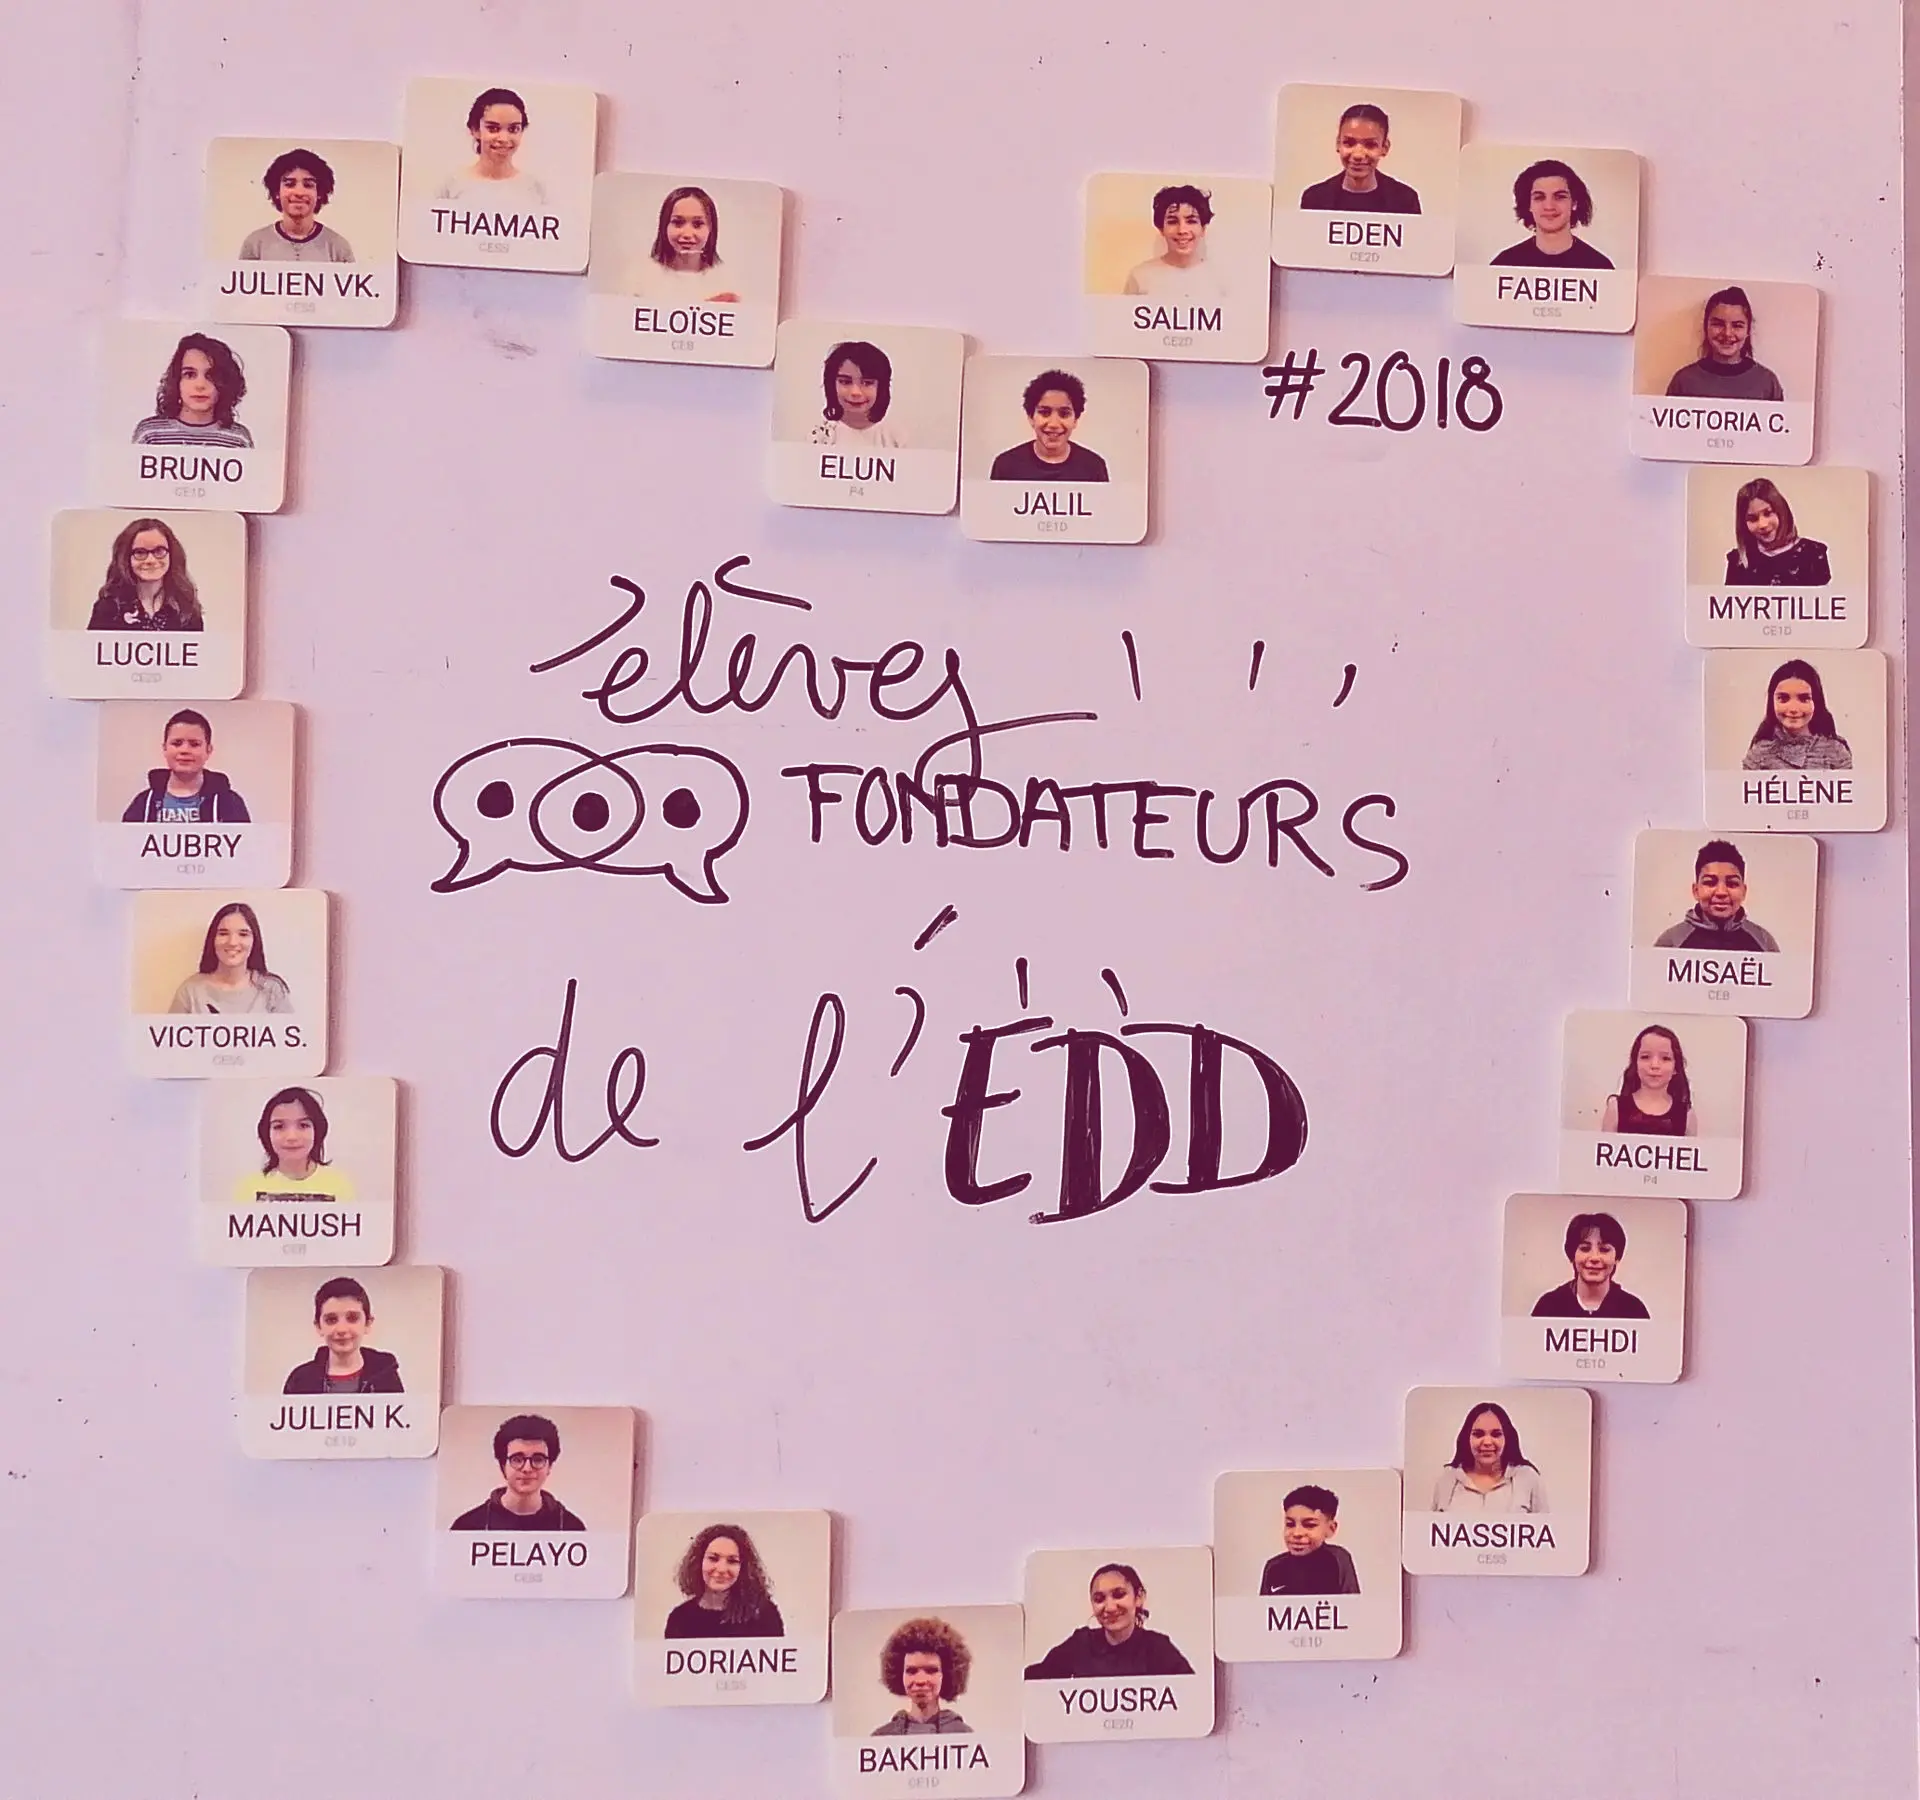 THAMAR
CESS
JULIEN VK.
CESS
ELOÏSE
CEB
EDEN
CE2D
SALIM
CE2D
FABIEN
CESS
#2018
VICTORIA C.
CE1D
BRUNO
CE1D
ELUN
P4
JALIL
CE1D
LUCILE
CE2D
MYRTILLE
CE1D
élèves
FONDATEURS
de l'ÉDD
HÉLÈNE
CEB
AUBRY
CE1D
MISAËL
CEB
VICTORIA S.
CESS
RACHEL
P4
MANUSH
CEB
MEHDI
CE1D
JULIEN K.
CE1D
PELAYO
CESS
NASSIRA
CESS
DORIANE
CESS
MAËL
CE1D
YOUSRA
CE2D
BAKHITA
CE1D